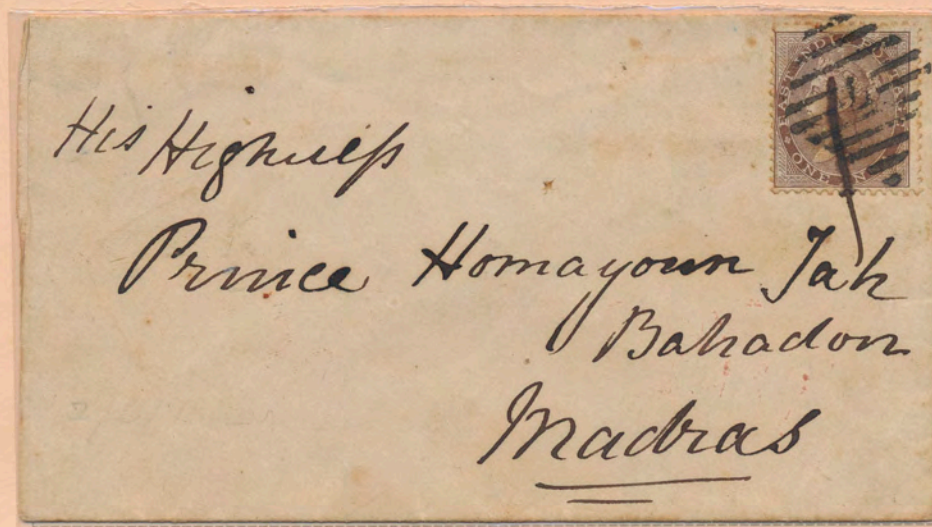 EAST INDIA POSTAGE
ONE ANNA
His Highness
Prince Homayoun Jah
Bahadour
Madras